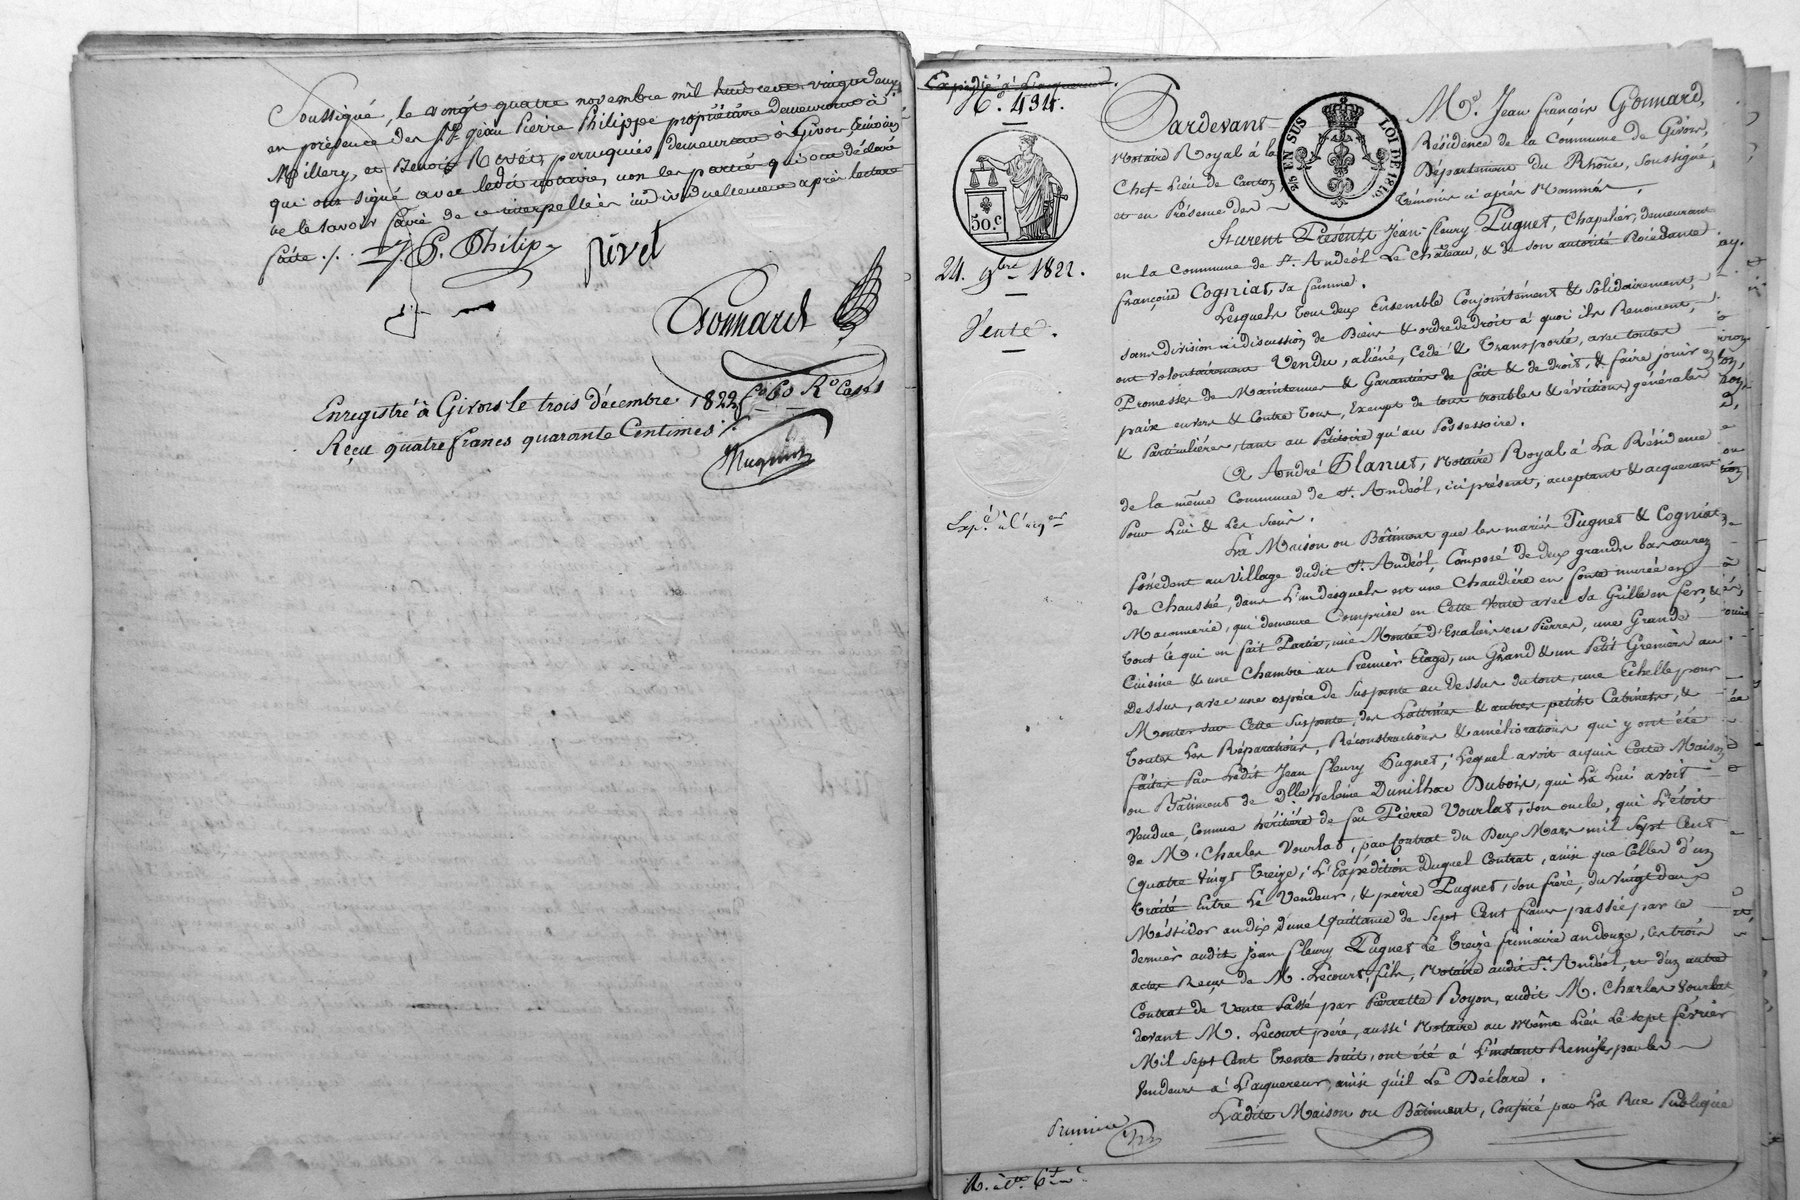 Soussigné, le vingt quatre novembre mil huit cent vingt deux,
en présence des Srs Jean Pierre Philippe propriétaire demeurant à
Millery, et Benoit Rivet, perruquier demeurant à Givors témoins
qui ont signé avec ledit notaire, non les parties qui ont déclaré
ne le savoir faire de ce interpellées individuellement après lecture
faite ./.
J. P. Philip
rivet
Gonnard
Enregistré à Givors le trois décembre 1822 fo 60 Ro Cases
Reçu quatre francs quarante Centimes ./.
Expédié à l'acquereur.
No. 434.
50 c
24. 9bre 1822.
Vente.
Expé. à l'acqeur
Pardevant
Me. Jean françois Gonnard,
Notaire Royal à la
Résidence de la Commune de Givors,
Chef Lieu de Canton,
Département du Rhône, soussigné,
et en Présence des
témoins ci après Nommés.
25 EN SUS
LOI DE 1816
Furent Présents Jean fleury Pugnet, Chapelier, demeurant
en la Commune de St. Andéol Le Château, & de son autorité Procédante
françoise Cogniat, sa femme.
Lesquels tous deux Ensemble Conjointement & Solidairement,
sans division ni discussion de Biens & ordre de droit à quoi ils Renoncent,
ont volontairement Vendu, aliéné, Cédé & Transporté, avec toutes
Promesses de Maintenues & Garanties de fait & de Droit, & faire jouir en
paix envers & Contre tous, Exempt de tous troubles & évictions générales
& Particulières, tant au Pétitoire qu'au Possessoire.
A André Flanut, Notaire Royal à La Résidence
de la même Commune de St. Andéol, ici présent, acceptant & acquerant
Pour Lui & Les Siens.
La Maison ou Bâtiment que les mariés Pugnet & Cogniat
Possédent au Village dudit St. Andéol, Composé de deux grands bas au rez
de Chaussée, dans L'un desquels est une Chaudière en fonte murée en
Maconnerie, qui demeure Comprise en Cette Vente avec sa Grille en fer, &
tout ce qui en fait Partie, une Montée d'Escaliers en Pierres, une Grande
Cuisine & une Chambre au Premier Etage, un Grand & un Petit Greniers au
Dessus, avec une espèce de Suspente au Dessus du tout, une Echelle pour
Monter sur Cette Suspente, des Lattrines & autres petits Cabinets, &
toutes Les Réparations, Réconstructions & améliorations qui y ont été
faites Par Ledit Jean fleury Pugnet, Lequel avoit acquis Cette Maison
ou Bâtiment de Dlle. heleine Dunilhac Dubois, qui La Lui avoit
Vendue, Comme héritière de feu Pierre Vourlat, son oncle, qui L'étoit
de M. Charles Vourlat, par Contrat du Deux Mars mil Sept Cent
Quatre Vingt Treize; L'Expédition Duquel Contrat, ainsi que Celles d'un
traité Entre Le Vendeur, & pierre Pugnet, son frère, du vingt deux
Messidor an dix d'une Quittance de Sept Cent francs passée par ce
dernier audit Jean fleury Pugnet Le treize frimaire an douze, Ces trois
actes Reçus de M. Lecourt, fils, Notaire audit St. Andéol, & d'un autre
Contrat de Vente Passé par Pierrette Boyon, audit M. Charles Vourlat
devant M. Lecourt père, aussi Notaire au Même Lieu Le Sept février
Mil Sept Cent trente huit, ont été à L'instant Remises par les
Vendeurs à L'acquereur, ainsi qu'il Le Déclare.
Ladite Maison ou Bâtiment, Confiné par La Rue Publique
Première